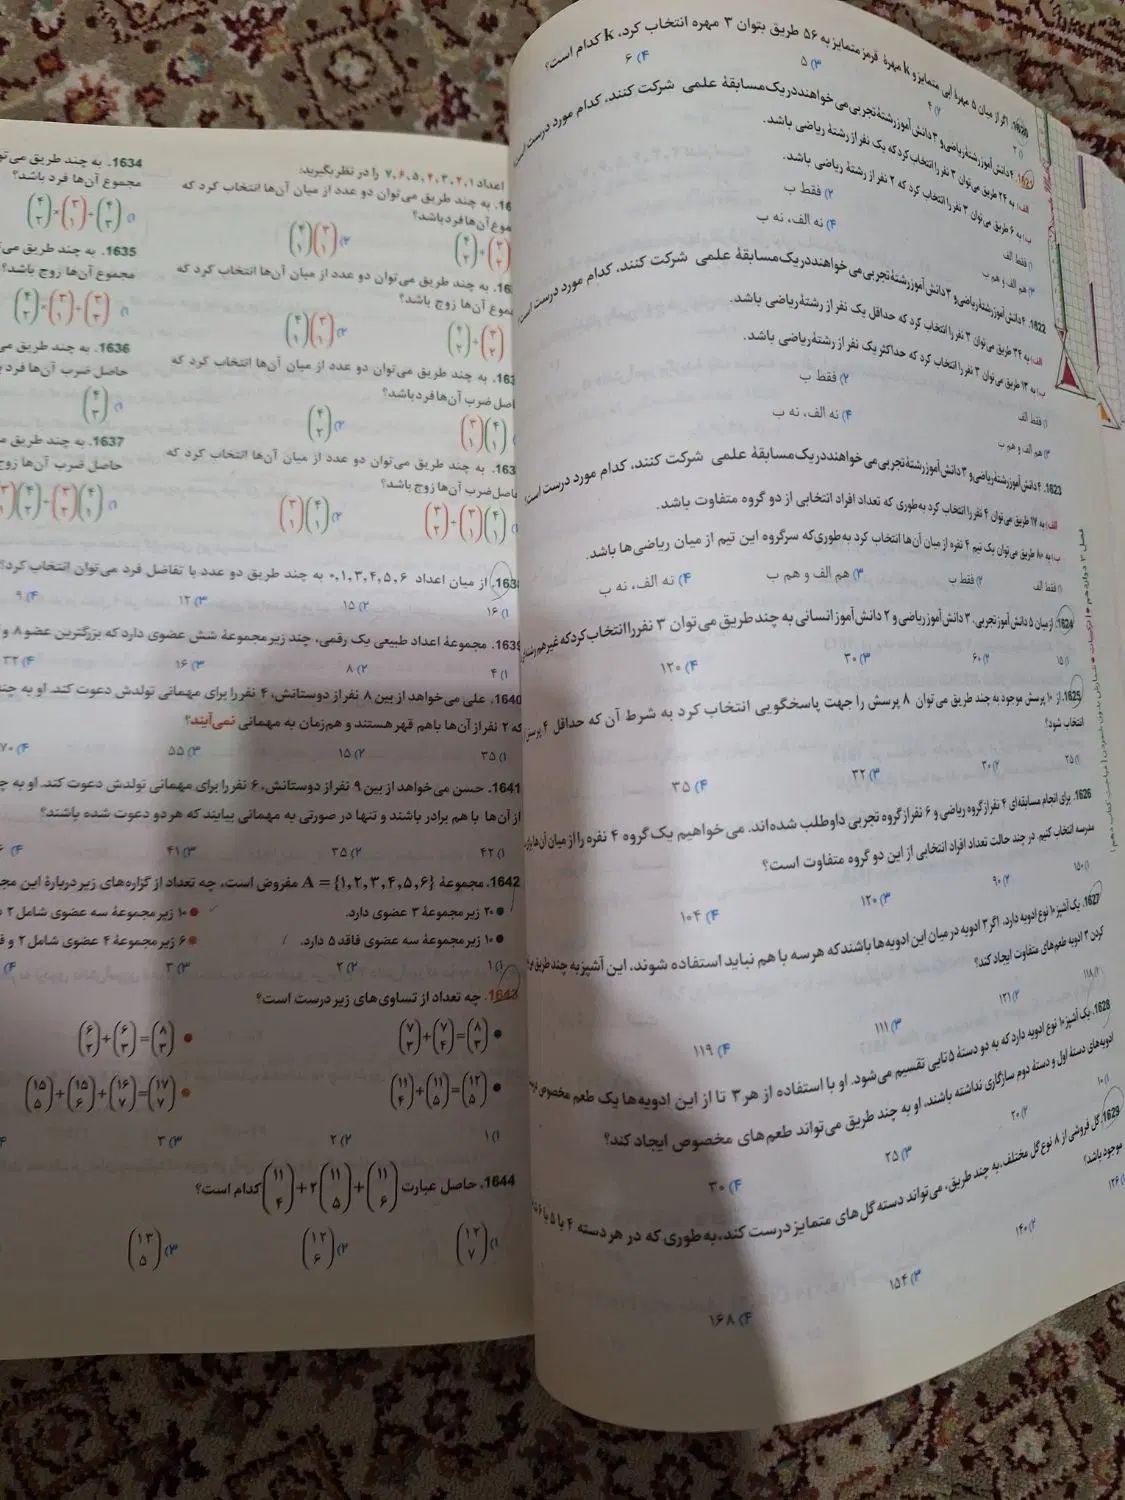 1620. اگر از میان ۵ مهرهٔ آبی متمایز و k مهرهٔ قرمز متمایز به ۵۶ طریق بتوان ۳ مهره انتخاب کرد، k کدام است؟
۲) ۴ ۳) ۵ ۴) ۶
1621. ۴ دانش‌آموز رشتهٔ ریاضی و ۳ دانش‌آموز رشتهٔ تجربی می‌خواهند در یک مسابقهٔ علمی شرکت کنند، کدام مورد درست است؟
الف) به ۲۴ طریق می‌توان ۳ نفر را انتخاب کرد که یک نفر از رشتهٔ ریاضی باشد.
ب) به ۶ طریق می‌توان ۳ نفر را انتخاب کرد که ۲ نفر از رشتهٔ ریاضی باشد.
۱) فقط الف ۲) فقط ب
۳) هم الف و هم ب ۴) نه الف، نه ب
1622. ۴ دانش‌آموز رشتهٔ ریاضی و ۳ دانش‌آموز رشتهٔ تجربی می‌خواهند در یک مسابقهٔ علمی شرکت کنند، کدام مورد درست است؟
الف) به ۳۴ طریق می‌توان ۳ نفر را انتخاب کرد که حداقل یک نفر از رشتهٔ ریاضی باشد.
ب) به ۱۳ طریق می‌توان ۳ نفر را انتخاب کرد که حداکثر یک نفر از رشتهٔ ریاضی باشد.
۱) فقط الف ۲) فقط ب
۳) هم الف و هم ب ۴) نه الف، نه ب
1623. ۴ دانش‌آموز رشتهٔ ریاضی و ۳ دانش‌آموز رشتهٔ تجربی می‌خواهند در یک مسابقهٔ علمی شرکت کنند، کدام مورد درست است؟
الف) به ۱۷ طریق می‌توان ۴ نفر را انتخاب کرد به‌طوری که تعداد افراد انتخابی از دو گروه متفاوت باشد.
ب) به ۸۰ طریق می‌توان یک تیم ۴ نفره از میان آن‌ها انتخاب کرد به‌طوری‌که سرگروه این تیم از میان ریاضی‌ها باشد.
۱) فقط الف ۲) فقط ب ۳) هم الف و هم ب ۴) نه الف، نه ب
1624. از میان ۵ دانش‌آموز تجربی، ۳ دانش‌آموز ریاضی و ۲ دانش‌آموز انسانی به چند طریق می‌توان ۳ نفر را انتخاب کرد که غیر هم‌رشته
۱) ۱۵ ۲) ۶۰ ۳) ۳۰ ۴) ۱۲۰
1625. از ۱۰ پرسش موجود به چند طریق می توان ۸ پرسش را جهت پاسخگویی انتخاب کرد به شرط آن که حداقل ۴ پرسش
انتخاب شود؟
۱) ۲۵ ۲) ۳۰ ۳) ۳۲ ۴) ۳۵
1626. برای انجام مسابقه‌ای ۴ نفر از گروه ریاضی و ۶ نفر از گروه تجربی داوطلب شده‌اند. می‌خواهیم یک گروه ۴ نفره را از میان آن‌ها برای
مدرسه انتخاب کنیم. در چند حالت تعداد افراد انتخابی از این دو گروه متفاوت است؟
۱) ۱۵۰ ۲) ۹۰ ۳) ۱۲۰ ۴) ۱۰۴
1627. یک آشپز ۱۰ نوع ادویه دارد، اگر ۳ ادویه در میان این ادویه‌ها باشند که هر سه با هم نباید استفاده شوند، این آشپز به چند طریق
کردن ۳ ادویه طعم‌های متفاوت ایجاد کند؟
۱) ۱۱۸ ۲) ۱۲۱ ۳) ۱۱۱ ۴) ۱۱۹
1628. یک آشپز ۱۰ نوع ادویه دارد که به دو دستهٔ ۵ تایی تقسیم می‌شود. او با استفاده از هر ۳ تا از این ادویه‌ها یک طعم مخصوص
ادویه‌های دستهٔ اول و دستهٔ دوم سازگاری نداشته باشند، او به چند طریق می‌تواند طعم‌های مخصوص ایجاد کند؟
۱) ۱۰ ۲) ۲۰ ۳) ۲۵ ۴) ۳۰
1629. گل فروشی از ۸ نوع گل مختلف، به چند طریق، می‌تواند دسته گل‌های متمایز درست کند، به‌طوری که در هر دسته ۴ یا ۵ یا ۶
موجود باشد؟
۱) ۱۲۶ ۲) ۱۴۰ ۳) ۱۵۴ ۴) ۱۶۸
اعداد ۷,۶,۵,۴,۳,۲,۱ را در نظر بگیرید:
به چند طریق می‌توان دو عدد از میان آن‌ها انتخاب کرد که
آن‌ها فرد باشد؟
(۳ ۲)+(۴ ۲) ۲) (۳ ۱)(۴ ۱)
به چند طریق می‌توان دو عدد از میان آن‌ها انتخاب کرد که
آن‌ها زوج باشد؟
(۳ ۲)+(۴ ۲) ۲) (۳ ۱)(۴ ۱)
به چند طریق می‌توان دو عدد از میان آن‌ها انتخاب کرد که
ضرب آن‌ها فرد باشد؟
(۳ ۱)(۴ ۱) ۲) (۴ ۲)
به چند طریق می‌توان دو عدد از میان آن‌ها انتخاب کرد که
ضرب آن‌ها زوج باشد؟
(۳ ۲)+(۳ ۱)(۴ ۱) ۲) (۳ ۱)(۴ ۱)
1634. به چند طریق
مجموع آن‌ها فرد باشد؟
1635. به چند طریق
مجموع آن‌ها زوج باشد؟
1636. به چند طریق
حاصل ضرب آن‌ها فرد
۱) (۴ ۳)
1637. به چند طریق
حاصل ضرب آن‌ها زوج
1638. از میان اعداد ۰,۱,۳,۴,۵,۶ به چند طریق دو عدد با تفاضل فرد می‌توان انتخاب کرد؟
۱) ۱۶ ۲) ۱۵ ۳) ۱۲ ۴) ۹
1639. مجموعهٔ اعداد طبیعی یک رقمی، چند زیرمجموعهٔ شش عضوی دارد که بزرگترین عضو ۸ و
۱) ۴ ۲) ۸ ۳) ۱۶ ۴) ۳۲
1640. علی می‌خواهد از بین ۸ نفر از دوستانش، ۴ نفر را برای مهمانی تولدش دعوت کند. او به
که ۲ نفر از آن‌ها باهم قهر هستند و هم‌زمان به مهمانی نمی‌آیند؟
۱) ۳۵ ۲) ۱۵ ۳) ۵۵ ۴) ۷۰
1641. حسن می‌خواهد از بین ۹ نفر از دوستانش، ۶ نفر را برای مهمانی تولدش دعوت کند. او به
از آن‌ها با هم برادر باشند و تنها در صورتی به مهمانی بیایند که هر دو دعوت شده باشند؟
۱) ۴۲ ۲) ۳۵ ۳) ۴۱
1642. مجموعهٔ A = {۱,۲,۳,۴,۵,۶} مفروض است، چه تعداد از گزاره‌های زیر دربارهٔ این
● ۲۰ زیرمجموعهٔ ۳ عضوی دارد. ● ۱۰ زیرمجموعهٔ سه عضوی شامل ۲
● ۱۰ زیرمجموعهٔ سه عضوی فاقد ۵ دارد. ● ۶ زیرمجموعهٔ ۴ عضوی شامل ۲ و
۱) ۱ ۲) ۲ ۳) ۳
1643. چه تعداد از تساوی‌های زیر درست است؟
● (۸ ۳)=(۷ ۴)+(۷ ۳) ● (۸ ۳)=(۶ ۳)+(۶ ۲)
● (۱۲ ۵)=(۱۱ ۵)+(۱۱ ۴) ● (۱۷ ۷)=(۱۶ ۷)+(۱۵ ۶)+(۱۵ ۵)
۱) ۱ ۲) ۲ ۳) ۳
1644. حاصل عبارت (۱۱ ۶)+۲(۱۱ ۵)+(۱۱ ۴) کدام است؟
۱) (۱۲ ۷) ۲) (۱۲ ۶) ۳) (۱۳ ۵)